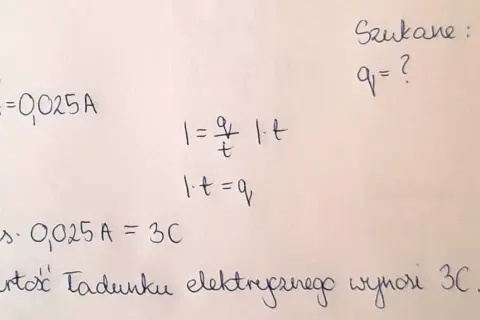 Szukane:
q = ?
= 0,025 A
I = q/t | · t
I · t = q
s · 0,025 A = 3C
artość ładunku elektrycznego wynosi 3C.